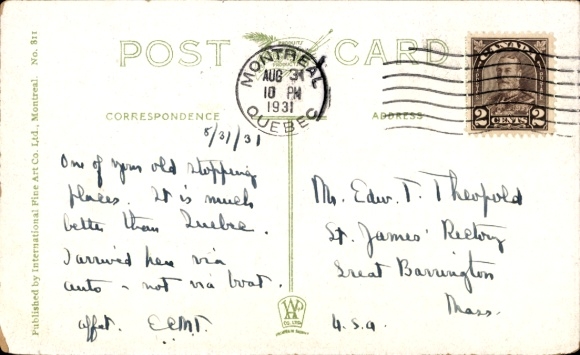 Published by International Fine Art Co. Ltd., Montreal. No. 811
POST CARD
MONTREAL
AUG 31
10 PM
1931
QUEBEC
CANADA
2 CENTS 2
CORRESPONDENCE
ADDRESS
8/31/31
One of your old stopping
places. It is much
better than Quebec.
I arrived here via
auto - not via boat.
affat. E.C.M.T.
Mr. Edw. T. Theopold
St. James' Rectory
Great Barrington
Mass.
U.S.A.